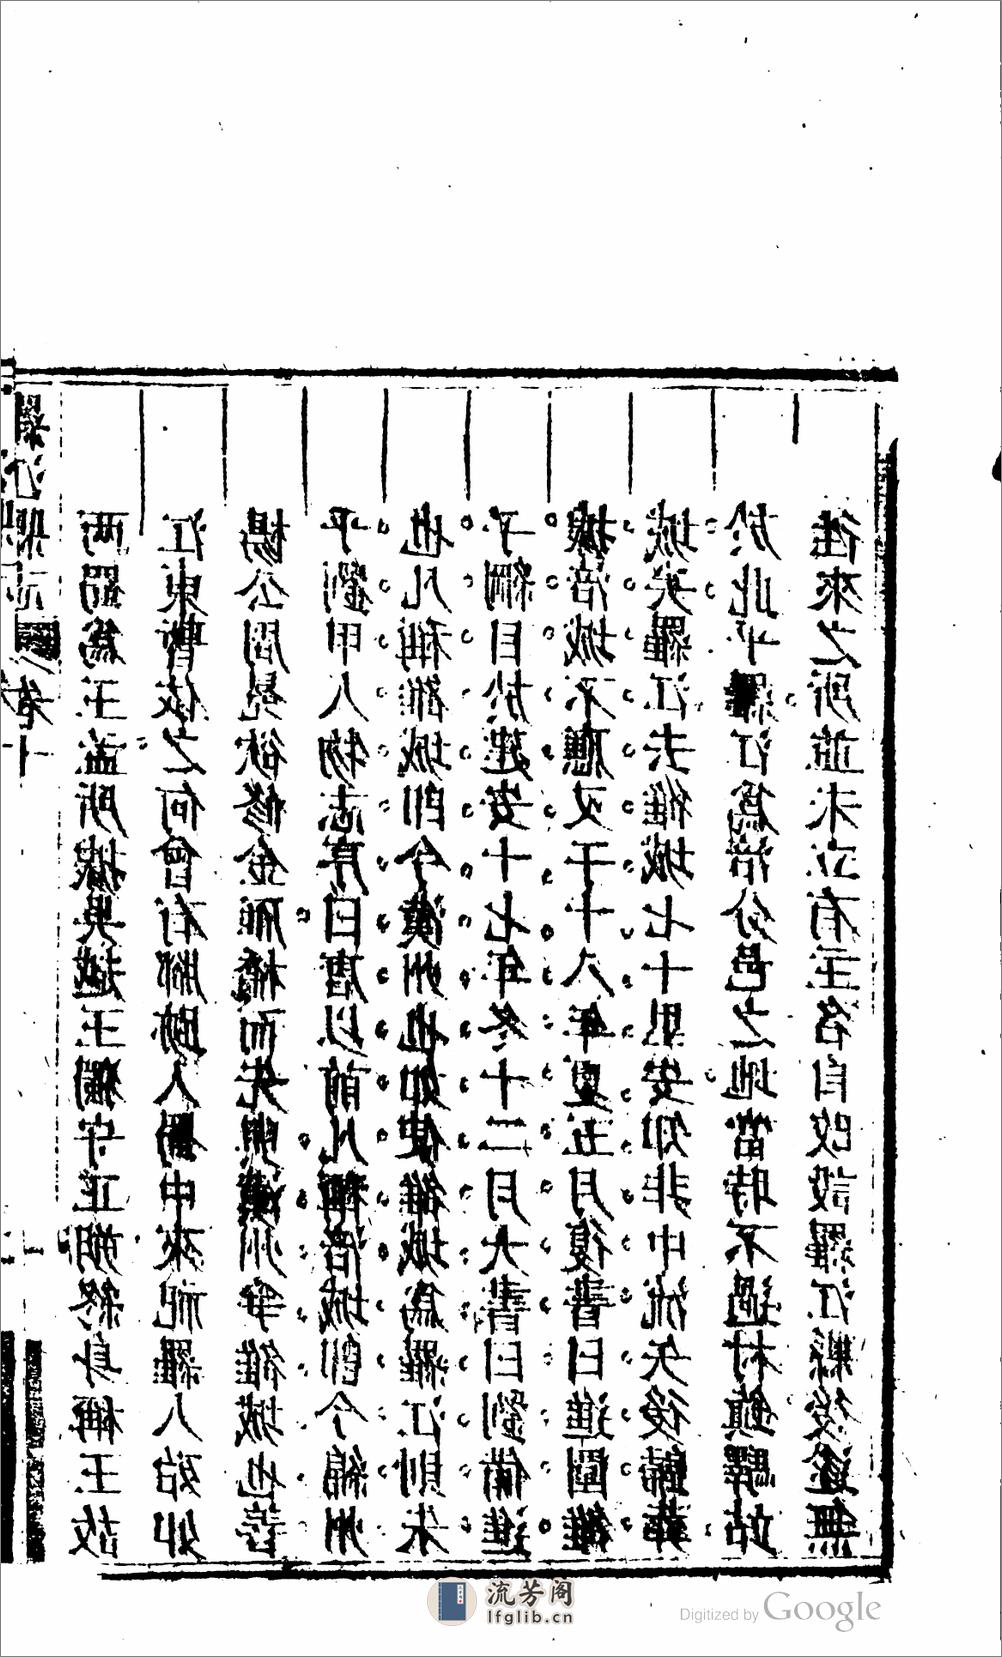 羅江縣志 卷十
兩蜀爲王孟所據吳越王獨守正朔終身稱王故
江東皆依之何曾有腳跡入蜀中來祀羅人殆如
楊公周冕欲修金雁橋而先與漢州爭雒城也善
乎劉甲人物志序曰唐以前凡稱涪城卽今綿州
也凡稱雒城卽今漢州也如使雒城爲羅江則朱
子綱目於建安十七年冬十二月大書曰劉備進
據涪城不應又于十八年夏五月復書曰進圍雒
城矣羅江去雒城七十里安知非中流矢後歸葬
於此乎羅江爲涪分邑之地當時不過村鎮驛站
往來之所並未立有主名自改設羅江縣後遂無
流芳阁
lfglib.cn
Digitized by Google